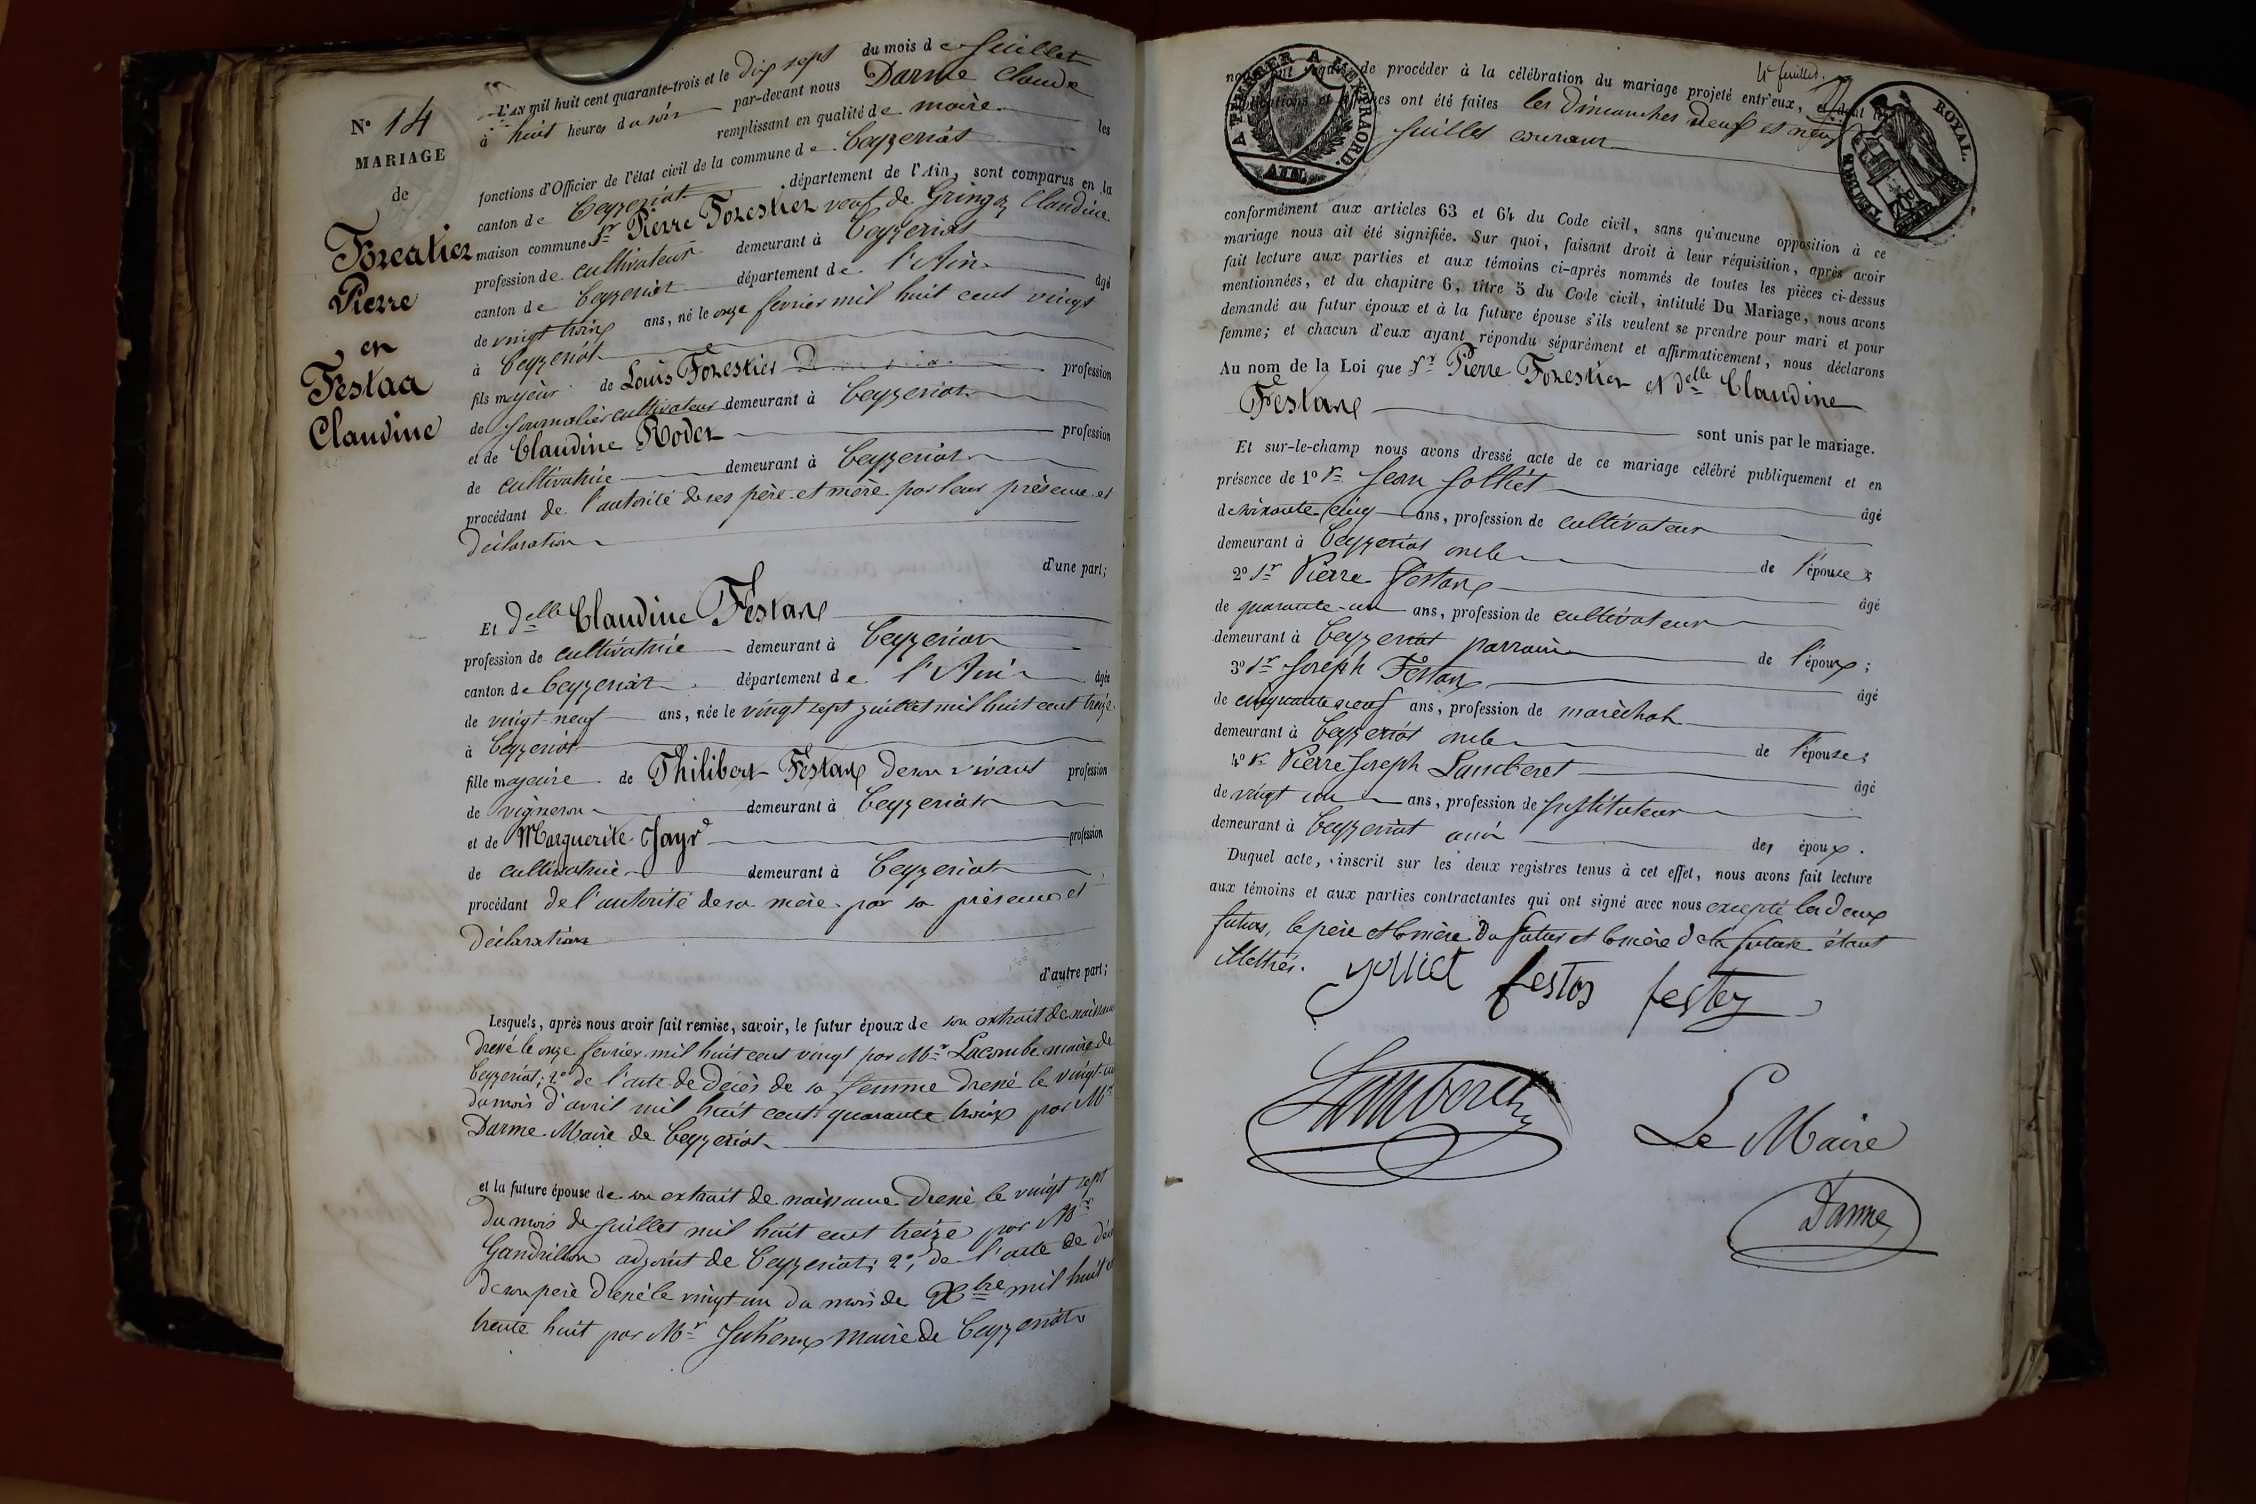 N° 14
MARIAGE
de
Forestier
Pierre
en
Festaz
Claudine
L'AN mil huit cent quarante-trois et le dix sept du mois de Juillet
à huit heures du soir par-devant nous Darme Claude
remplissant en qualité de maire les
fonctions d'Officier de l'état civil de la commune de Ceyzeriat
canton de Ceyzeriat, département de l'Ain, sont comparus en la
maison commune Sr Pierre Forestier veuf de Gringoz Claudine
profession de cultivateur demeurant à Ceyzeriat
canton de Ceyzeriat département de l'Ain âgé
de vingt trois ans, né le onze fevrier mil huit cent vingt
à Ceyzeriat
fils majeur de Louis Forestier profession
de journalier cultivateur demeurant à Ceyzeriat
et de Claudine Rodet profession
de cultivatrice demeurant à Ceyzeriat
procédant de l'autorité de ses père et mère par leur présence et
déclaration
d'une part;
Et delle Claudine Festaz
profession de cultivatrice demeurant à Ceyzeriat
canton de Ceyzeriat département de l'Ain âgée
de vingt-neuf ans, née le vingt sept juillet mil huit cent treize
à Ceyzeriat
fille majeure de Philibert Festaz de son vivant profession
de vigneron demeurant à Ceyzeriat
et de Marguerite Jayr profession
de cultivatrice demeurant à Ceyzeriat
procédant de l'autorité de sa mère par sa présence et
déclaration
d'autre part;
Lesquels, après nous avoir fait remise, savoir, le futur époux de son extrait de naissance
dressé le onze fevrier mil huit cent vingt par Mr Lacombe maire de
Ceyzeriat; 2° de l'acte de décès de sa femme dressé le vingt-un
du mois d'avril mil huit cent quarante trois par Mr
Darme Maire de Ceyzeriat
et la future épouse de son extrait de naissance dressé le vingt sept
du mois de juillet mil huit cent treize par Mr
Gandrillon adjoint de Ceyzeriat; 2° de l'acte de décès
de son père dressé le vingt-un du mois de Xbre mil huit cent
trente huit par Mr Maire de Ceyzeriat
4e feuillet.
A TIMBRER A L'EXTRAORD.
AIN
TIMBRE ROYAL.
nous ont requis de procéder à la célébration du mariage projeté entr'eux, et dont les
publications et affiches ont été faites les dimanches deux et neuf
juillet courant
conformément aux articles 63 et 64 du Code civil, sans qu'aucune opposition à ce
mariage nous ait été signifiée. Sur quoi, faisant droit à leur réquisition, après avoir
fait lecture aux parties et aux témoins ci-après nommés de toutes les pièces ci-dessus
mentionnées, et du chapitre 6, titre 5 du Code civil, intitulé Du Mariage, nous avons
demandé au futur époux et à la future épouse s'ils veulent se prendre pour mari et pour
femme; et chacun d'eux ayant répondu séparément et affirmativement, nous déclarons
Au nom de la Loi que Sr Pierre Forestier et delle Claudine
Festaz
sont unis par le mariage.
Et sur-le-champ nous avons dressé acte de ce mariage célébré publiquement et en
présence de 1° Sr Jean Jolliet âgé
de soixante cinq ans, profession de cultivateur
demeurant à Ceyzeriat oncle de l'épouse;
2° Sr Pierre Festaz âgé
de quarante-un ans, profession de cultivateur
demeurant à Ceyzeriat parrain de l'époux;
3° Sr Joseph Festaz âgé
de cinquante neuf ans, profession de maréchal
demeurant à Ceyzeriat oncle de l'épouse;
4° Sr Pierre Joseph Lamberet âgé
de vingt un ans, profession de instituteur
demeurant à Ceyzeriat ami des époux.
Duquel acte, inscrit sur les deux registres tenus à cet effet, nous avons fait lecture
aux témoins et aux parties contractantes qui ont signé avec nous excepté les deux
futurs, le père et la mère du futur et la mère de la future étant
illettrés.
Jolliet festas festaz
Lamberet
Le Maire
Darme